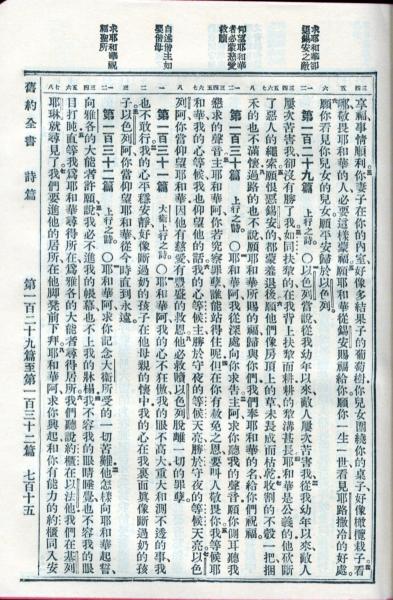 求耶和華卻
惡錫安之敵
仰望耶和華
者必蒙慈愛
救贖
自述倚主如
嬰倚母
求耶和華視
福聖所
享福事情順利你妻子在你的內室好像多結果子的葡萄樹你兒女圍繞你的桌子好像橄欖栽子看
哪敬畏耶和華的人必要這樣蒙福願耶和華從錫安賜福給你願你一生一世看見耶路撒冷的好處
願你看見你兒女的兒女願平安歸於以色列
第一百二十九篇 上行之詩。〇以色列當說從我幼年以來敵人屢次苦害我從我幼年以來敵人
屢次苦害我卻沒有勝了我如同扶犂的在我背上扶犂而耕耕的犂溝甚長耶和華是公義的他砍斷
了惡人的繩索願恨惡錫安的都蒙羞退後願他們像房頂上的草未長成而枯乾收割的不彀一把捆
禾的也不滿懷過路的也不說願耶和華所賜的福歸與你們我們奉耶和華的名給你們祝福。
第一百三十篇 上行之詩。〇耶和華阿我從深處向你求告主阿求你聽我的聲音願你側耳聽我
懇求的聲音主耶和華阿你若究察罪孽誰能站得住呢但在你有赦免之恩要叫人敬畏你我等候耶
和華我的心等候我也仰望他的話我的心等候主勝於守夜的等候天亮勝於守夜的等候天亮以色
列阿你當仰望耶和華因他有慈愛有豐盛的救恩他必救贖以色列脫離一切的罪孽。
第一百三十一篇 大衞上行之詩。〇耶和華阿我的心不狂傲我的眼不高大重大和測不透的事我
也不敢行我的心平穩安靜好像斷過奶的孩子在他母親的懷中我的心在我裏面真像斷過奶的孩
子以色列阿你當仰望耶和華從今時直到永遠。
第一百三十二篇 上行之詩。〇耶和華阿求你記念大衞所受的一切苦難他怎樣向耶和華起誓
向雅各的大能者許願說我必不進我的帳幕也不上我的牀榻我不容我的眼睛睡覺也不容我的眼
目打盹直等我爲耶和華尋得所在爲雅各的大能者尋得居所我們聽說約櫃在以法他我們在基列
耶琳就尋見了我們要進他的居所在他脚凳前下拜耶和華阿求你興起和你有能力的約櫃同入安
舊約全書 詩篇 第一百二十九篇至第一百三十二篇 七百十五